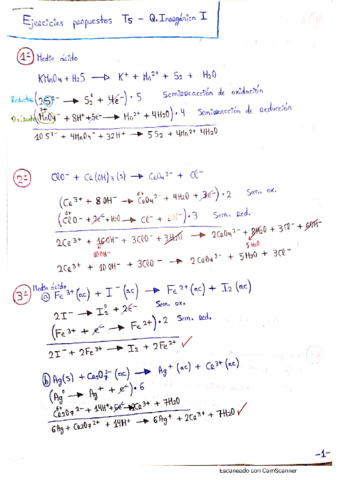 Ejercicios propuestos T5 - Q. Inorgánica I
1º Medio ácido
KMnO4 + H2S → K+ + Mn2+ + S2 + H2O
Reductor (2S2- → S2 + 4e-) · 5 Semirreacción de oxidación
Oxidante (MnO4- + 8H+ + 5e- → Mn2+ + 4H2O) · 4 Semirreacción de reducción
10 S2- + 4MnO4- + 32H+ → 5 S2 + 4Mn2+ 4H2O
2º ClO- + Ca(OH)3(s) → CaO4 2- + Cl-
(Ca3+ + 8OH- → CaO4 2- + 4H2O + 3e-) · 2 Sem. ox.
(ClO- + 2e- + H2O → Cl- + 2OH-) · 3 Sem. red.
2Ca3+ + 16OH- + 3ClO- + 3H2O → 2CaO4 2- + 8H2O + 3Cl- + 6OH-
10OH- 5H2O
2Ca3+ + 10OH- + 3ClO- → 2CaO4 2- + 5H2O + 3Cl-
3º Medio ácido
a) Fe3+(ac) + I-(ac) → Fe2+(ac) + I2(ac)
2I- → I2 + 2e- Sem. ox.
(Fe3+ + e- → Fe2+) · 2 Sem. red.
2I- + 2Fe3+ → I2 + 2Fe2+ ✓
b) Ag(s) + Ca2O7 2-(ac) → Ag+(ac) + Ca3+(ac)
(Ag → Ag+ + e-) · 6
Ca2O7 2- + 14H+ + 6e- → 2Ca3+ + 7H2O
6Ag + Ca2O7 2- + 14H+ → 6Ag+ + 2Ca3+ + 7H2O ✓
-1-
Escaneado con CamScanner